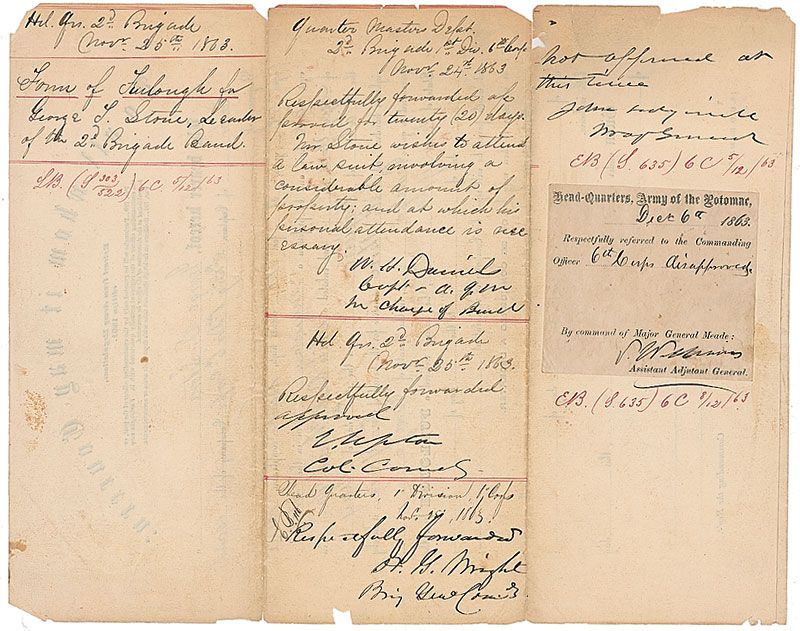 Hd. Qrs. 2d Brigade
Novr 25th 1863.
Form of Furlough for
George T. Stone, Leader
of the 2d Brigade Band.
(S 303/522) 6C 5/12/63
Quarter Masters Dept.
2d Brigade 1st Div. 6th Corps
Novr 24th 1863
Respectfully forwarded ap
proved for twenty (20) days.
Mr Stone wishes to attend
a law suit, involving a
considerable amount of
property; and at which his
personal attendance is nec
essary.
W. H. Daniels
Capt - A. Q. M
In charge of Band
Hd Qrs. 2d Brigade
Novr 25th 1863.
Respectfully forwarded
approved
E. Upton
Col. Comdg.
Head Quarters, 1st Division, 6 Corps
1863.
Respectfully forwarded
H. G. Wright
Brig Genl Comdg
Not approved at
this time
John Sedgwick
Maj Genl
EB (S. 635) 6C 5/12/63
Head-Quarters, Army of the Potomac,
Decr 6th 1863.
Respectfully referred to the Commanding
Officer 6th Corps disapproved.
By command of Major General Meade:
S. Williams
Assistant Adjutant General.
EB. (S. 635) 6C 8/12/63